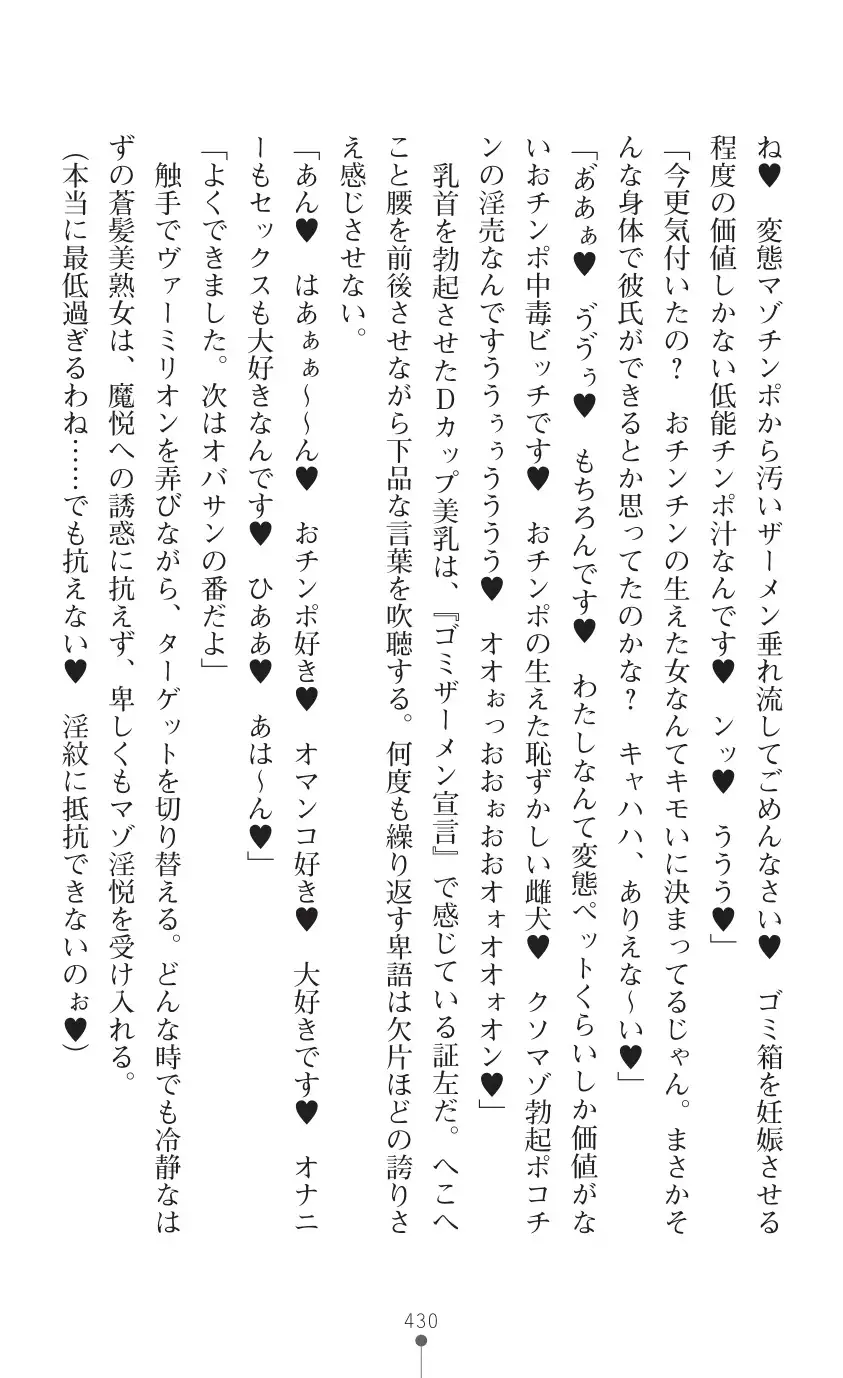 ね♥　変態マゾチンポから汚いザーメン垂れ流してごめんなさい♥　ゴミ箱を妊娠させる
程度の価値しかない低能チンポ汁なんです♥　ンッ♥　ううう♥」
「今更気付いたの？　おチンチンの生えた女なんてキモいに決まってるじゃん。まさかそ
んな身体で彼氏ができるとか思ってたのかな？　キャハハ、ありえな～い♥」
「あ゙あぁ♥　ゔゔぅ♥　もちろんです♥　わたしなんて変態ペットくらいしか価値がな
いおチンポ中毒ビッチです♥　おチンポの生えた恥ずかしい雌犬♥　クソマゾ勃起ポコチ
ンの淫売なんですううぅぅうううう♥　オオぉっおおぉおおオォオオォオン♥」
　乳首を勃起させたＤカップ美乳は、『ゴミザーメン宣言』で感じている証左だ。へこへ
こと腰を前後させながら下品な言葉を吹聴する。何度も繰り返す卑語は欠片ほどの誇りさ
え感じさせない。
「あん♥　はあぁぁ～～ん♥　おチンポ好き♥　オマンコ好き♥　大好きです♥　オナニ
ーもセックスも大好きなんです♥　ひああ♥　あは～ん♥」
「よくできました。次はオバサンの番だよ」
　触手でヴァーミリオンを弄びながら、ターゲットを切り替える。どんな時でも冷静なは
ずの蒼髪美熟女は、魔悦への誘惑に抗えず、卑しくもマゾ淫悦を受け入れる。
（本当に最低過ぎるわね……でも抗えない♥　淫紋に抵抗できないのぉ♥）
430